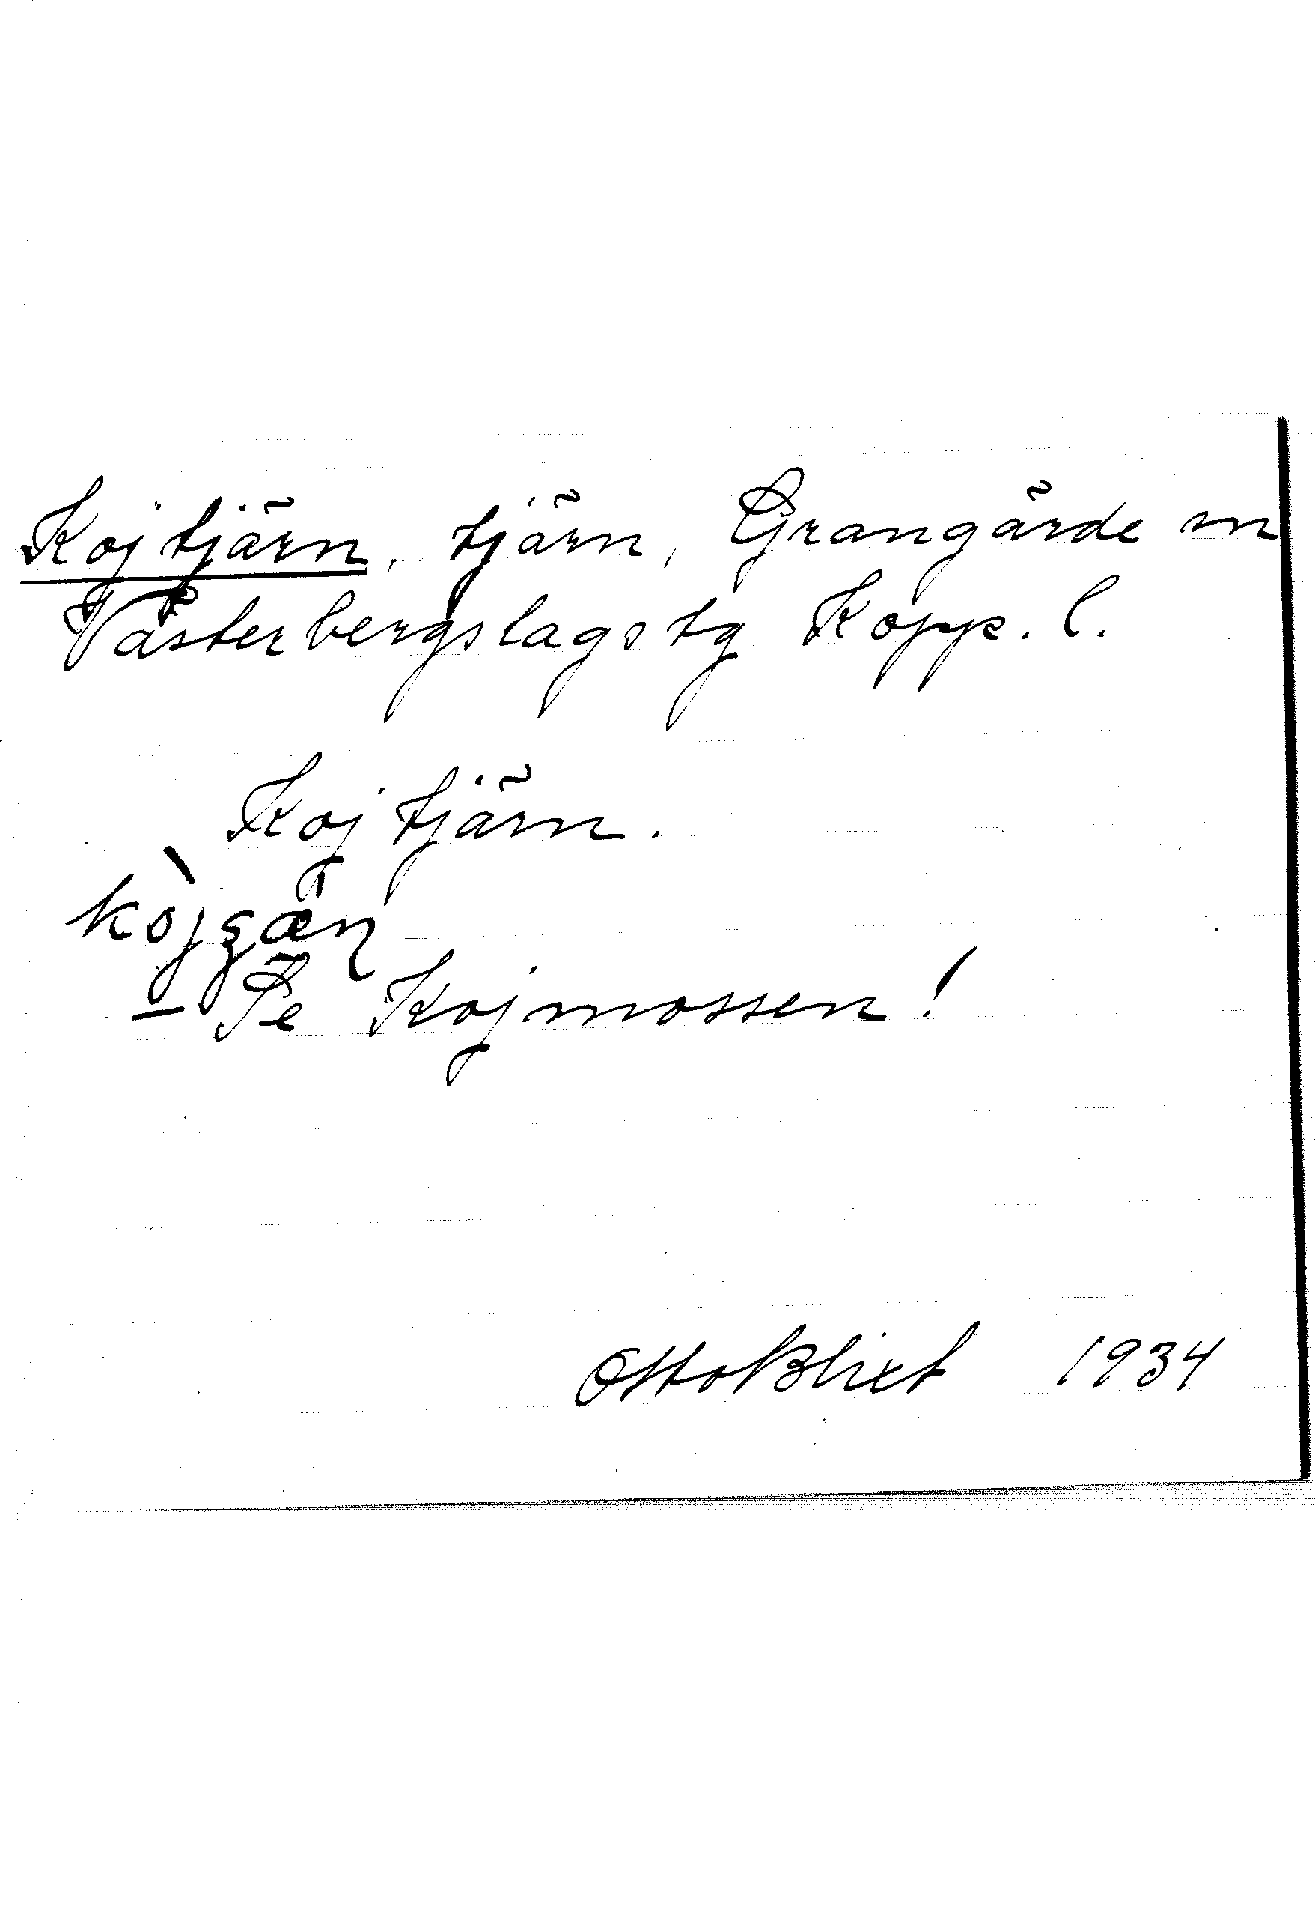 Kojtjärn, tjärn, Grangärde sn
Västerbergslags tg Kopp. l.
Kojtjärn.
– Se Kojmossen!
Otto Blixt 1934